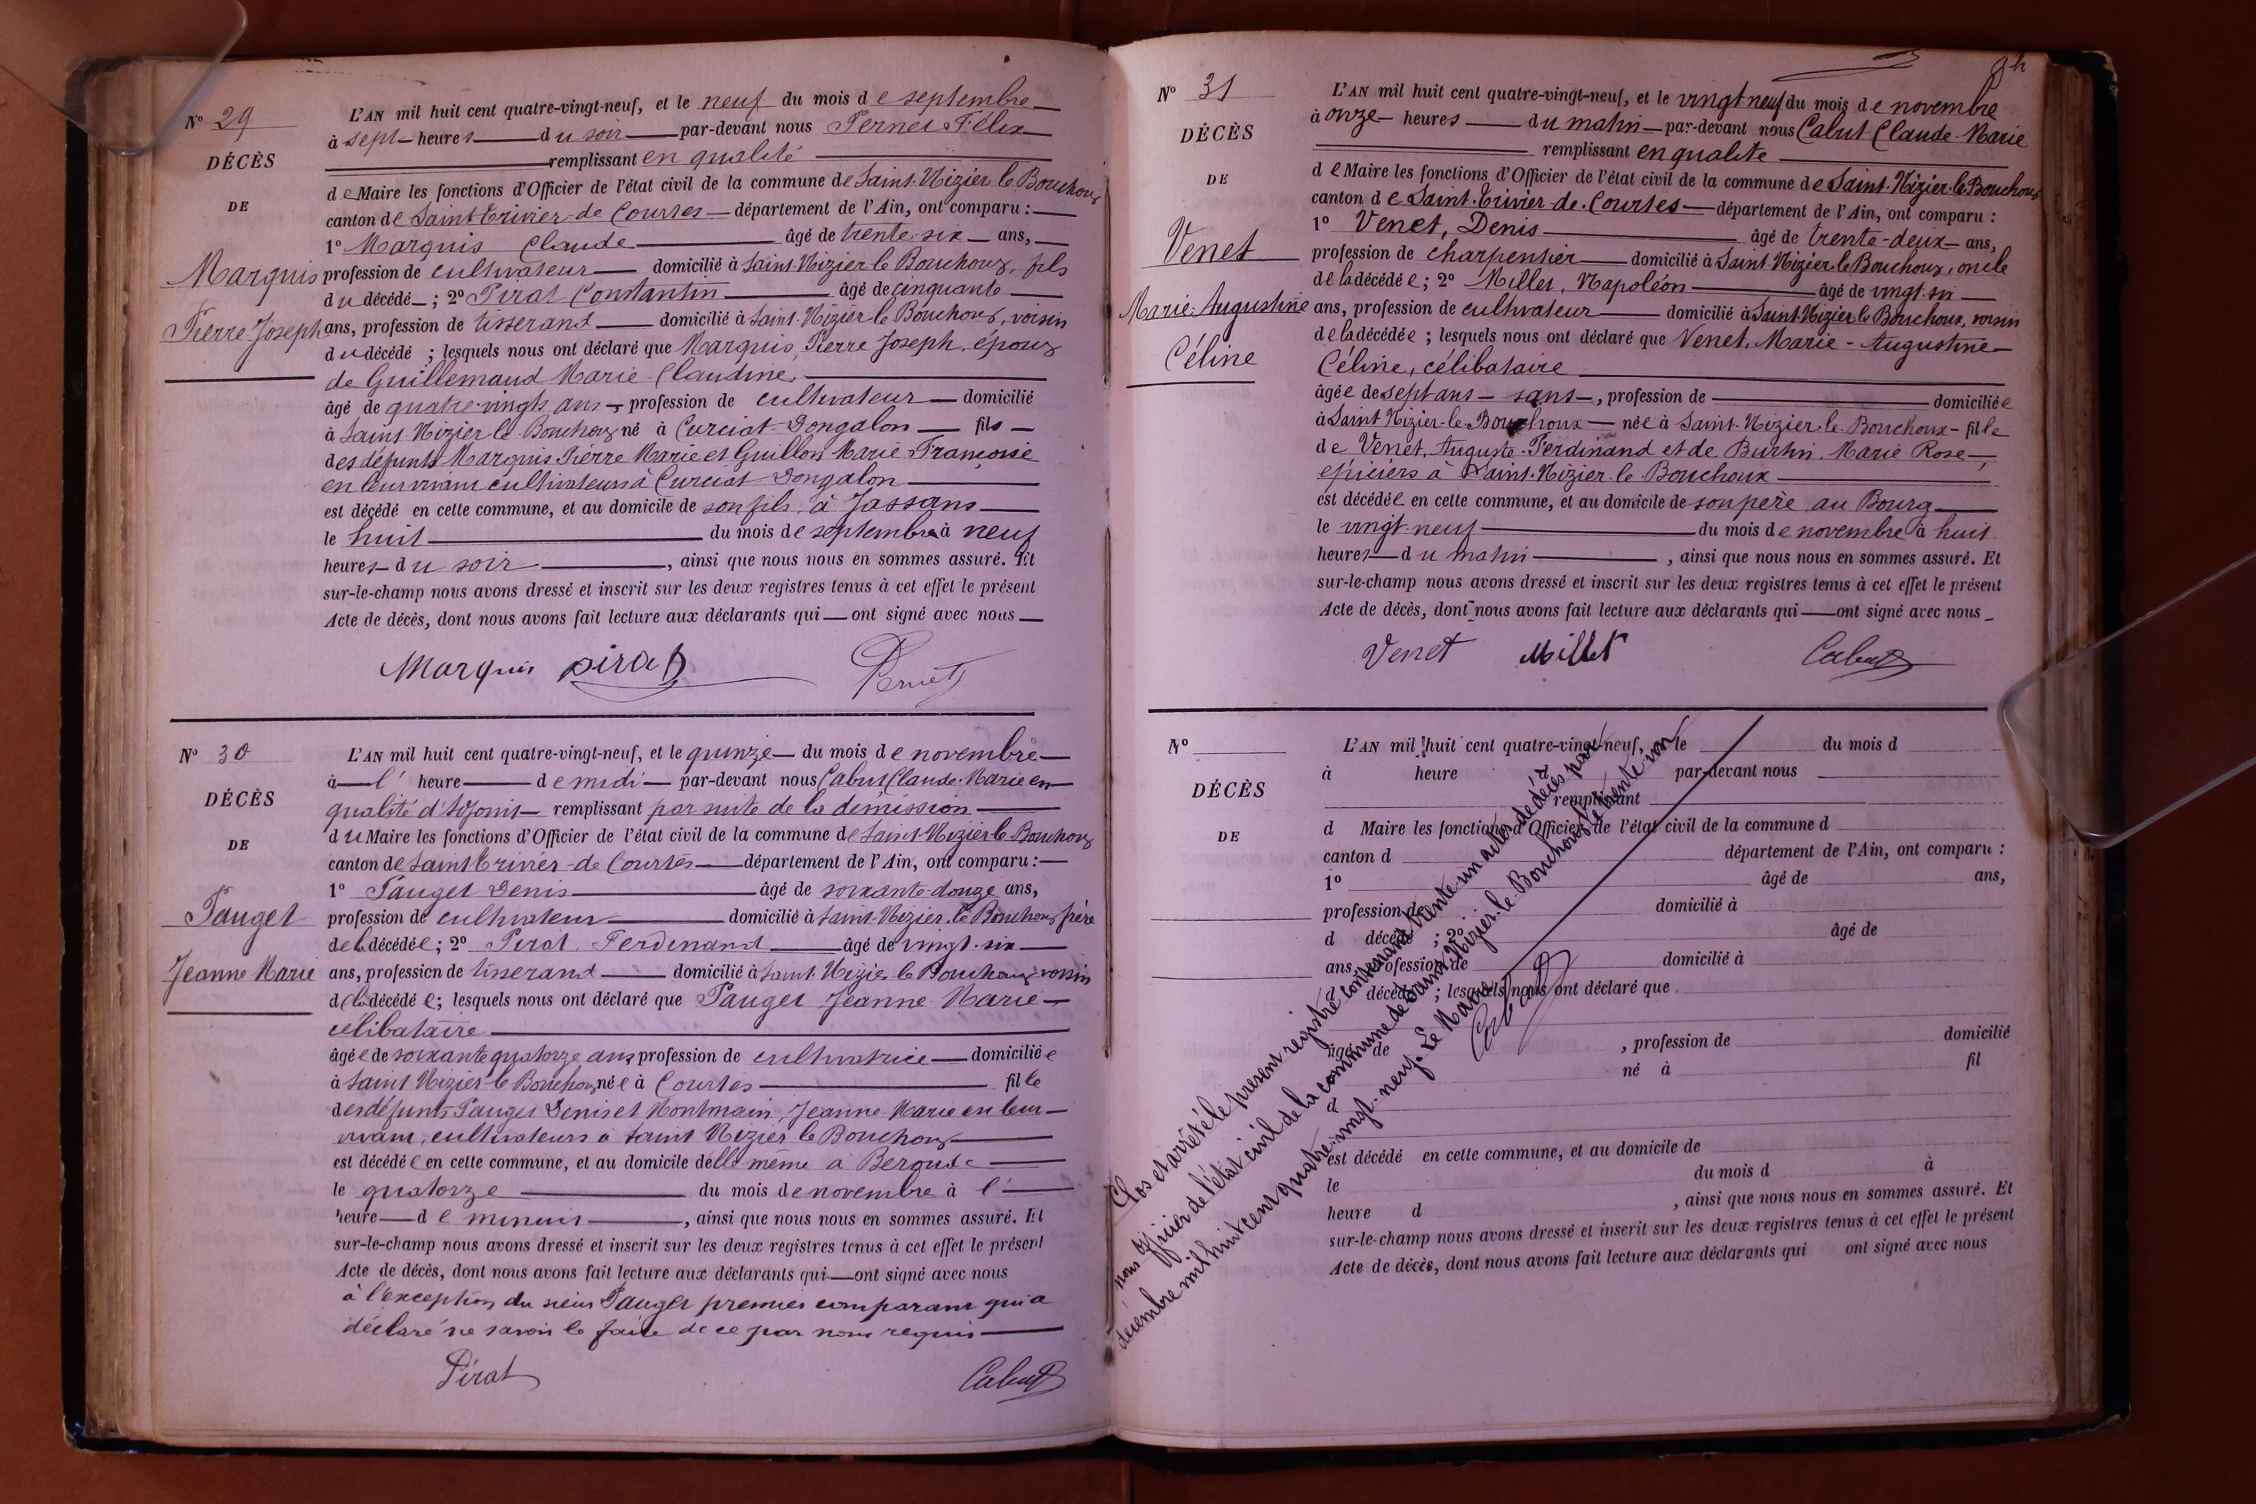 N° 29
DÉCÈS
DE
Marquis
Pierre Joseph
L'AN mil huit cent quatre-vingt-neuf, et le neuf du mois de septembre
à sept heures du soir par-devant nous Pernet Félix
remplissant en qualité
de Maire les fonctions d'Officier de l'état civil de la commune de Saint-Nizier le Bouchoux
canton de Saint Trivier-de Courtes département de l'Ain, ont comparu :
1° Marquis Claude âgé de trente-six ans,
profession de cultivateur domicilié à Saint-Nizier le Bouchoux, fils
du décédé ; 2° Pirat Constantin âgé de cinquante
ans, profession de tisserand domicilié à Saint-Nizier le Bouchoux, voisin
du décédé ; lesquels nous ont déclaré que Marquis, Pierre Joseph, époux
de Guillemaud Marie Claudine,
âgé de quatre-vingts ans, profession de cultivateur domicilié
à Saint Nizier le Bouchoux né à Curciat-Dongalon fils
des défunts Marquis Pierre Marie et Guillon Marie Françoise
en leur vivant cultivateurs à Curciat Dongalon
est décédé en cette commune, et au domicile de son fils, à Jassans
le huit du mois de septembre à neuf
heures du soir, ainsi que nous nous en sommes assuré. Et
sur-le-champ nous avons dressé et inscrit sur les deux registres tenus à cet effet le présent
Acte de décès, dont nous avons fait lecture aux déclarants qui ont signé avec nous
Marquis pirat Pernet
N° 30
DÉCÈS
DE
Pauget
Jeanne Marie
L'AN mil huit cent quatre-vingt-neuf, et le quinze du mois de novembre
à l' heure de midi par-devant nous Cabut Claude-Marie en
qualité d'adjoint remplissant par suite de la démission
du Maire les fonctions d'Officier de l'état civil de la commune de Saint-Nizier le Bouchoux
canton de Saint Trivier-de Courtes département de l'Ain, ont comparu :
1° Pauget Denis âgé de soixante-douze ans,
profession de cultivateur domicilié à Saint-Nizier-le Bouchoux frère
de la décédée ; 2° Pirat Ferdinand âgé de vingt-six
ans, profession de tisserand domicilié à Saint-Nizier le Bouchoux voisin
de la décédée ; lesquels nous ont déclaré que Pauget Jeanne Marie
célibataire
âgée de soixante quatorze ans, profession de cultivatrice domiciliée
à Saint Nizier-le Bouchoux née à Courtes fille
des défunts Pauget Denis et Montmain, Jeanne Marie en leur
vivant, cultivateurs à Saint Nizier le Bouchoux
est décédée en cette commune, et au domicile d'elle même à
le quatorze du mois de novembre à l'
heure de minuit, ainsi que nous nous en sommes assuré. Et
sur-le-champ nous avons dressé et inscrit sur les deux registres tenus à cet effet le présent
Acte de décès, dont nous avons fait lecture aux déclarants qui ont signé avec nous
à l'exception du sieur Pauget premier comparant qui a
déclaré ne savoir le faire de ce par nous requis
Pirat Cabut
N° 31
DÉCÈS
DE
Venet
Marie-Augustine
Céline
L'AN mil huit cent quatre-vingt-neuf, et le vingt neuf du mois de novembre
à onze heures du matin par-devant nous Cabut Claude-Marie
remplissant en qualité
de Maire les fonctions d'Officier de l'état civil de la commune de Saint-Nizier-le Bouchoux
canton de Saint-Trivier-de-Courtes département de l'Ain, ont comparu :
1° Venet, Denis âgé de trente-deux ans,
profession de charpentier domicilié à Saint Nizier-le Bouchoux, oncle
de la décédée ; 2° Millet, Napoléon âgé de vingt-six
ans, profession de cultivateur domicilié à Saint-Nizier le Bouchoux, voisin
de la décédée ; lesquels nous ont déclaré que Venet, Marie-Augustine
Céline, célibataire
âgée de sept ans sans, profession de domiciliée
à Saint Nizier-le-Bouchoux née à Saint-Nizier-le-Bouchoux fille
de Venet, Auguste-Ferdinand et de Burtin, Marie Rose,
épiciers à Saint-Nizier-le Bouchoux
est décédée en cette commune, et au domicile de son père au Bourg
le vingt-neuf du mois de novembre à huit
heures du matin, ainsi que nous nous en sommes assuré. Et
sur-le-champ nous avons dressé et inscrit sur les deux registres tenus à cet effet le présent
Acte de décès, dont nous avons fait lecture aux déclarants qui ont signé avec nous
Venet Millet Cabut
N°
DÉCÈS
DE
L'AN mil huit cent quatre-vingt-neuf, et le du mois d
à heure par-devant nous
remplissant
d Maire les fonctions d'Officier de l'état civil de la commune d
canton d département de l'Ain, ont comparu :
1° âgé de ans,
profession de domicilié à
d décédé ; 2° âgé de
ans, profession de domicilié à
d décédé ; lesquels nous ont déclaré que
âgé de , profession de domicilié
né à fil
d
est décédé en cette commune, et au domicile de
le du mois d à
heure d , ainsi que nous nous en sommes assuré. Et
sur-le-champ nous avons dressé et inscrit sur les deux registres tenus à cet effet le présent
Acte de décès, dont nous avons fait lecture aux déclarants qui ont signé avec nous
Clos et arrêté le présent registre contenant trente-un actes de décès par
nous Officier de l'état civil de la commune de Saint-Nizier-le-Bouchoux le trente un
décembre mil huit cent quatre-vingt-neuf. Le Maire
Cabut